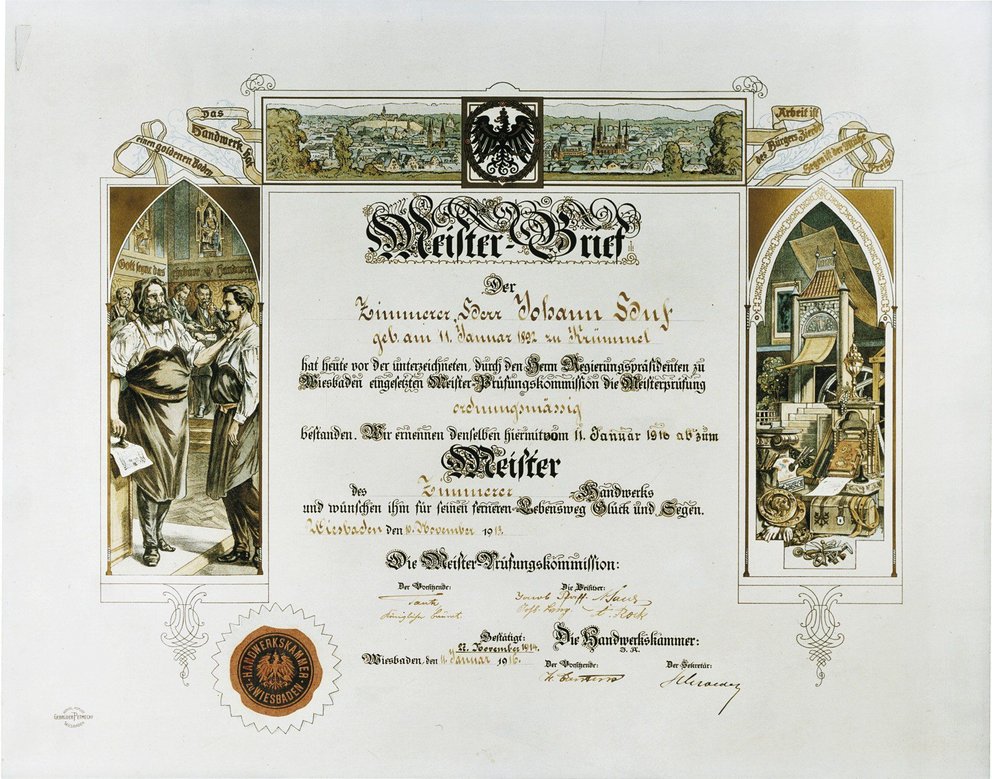 Das
Handwerk hat
einen goldenen Boden
Arbeit ist
des Bürgers Zierde
Segen ist der Mühe
Preis
Gott segne das ehrbare Handwerk
Meister-Brief
Der
Zimmerer, Herr Johann
geb. am 11. Januar 1892 zu Krümmel
hat heute vor der unterzeichneten, durch den Herrn Regierungspräsidenten zu
Wiesbaden eingesetzten Meister-Prüfungskommission die Meisterprüfung
ordnungsmässig
bestanden. Wir ernennen denselben hiermit vom 11. Januar 1916 ab zum
Meister
des Zimmerer-Handwerks
und wünschen ihm für seinen ferneren Lebensweg Glück und Segen.
Wiesbaden den 10. November 1913.
Die Meister-Prüfungskommission:
Der Vorsitzende: Die Beisitzer:
Bestätigt: Die Handwerkskammer:
22. November 1914. J. A.
Wiesbaden, den 11. Januar 1916. Der Vorsitzende: Der Sekretär:
Schroeder
HANDWERKSKAMMER
ZU WIESBADEN
GEBRÜDER PETMECKY
WIESBADEN